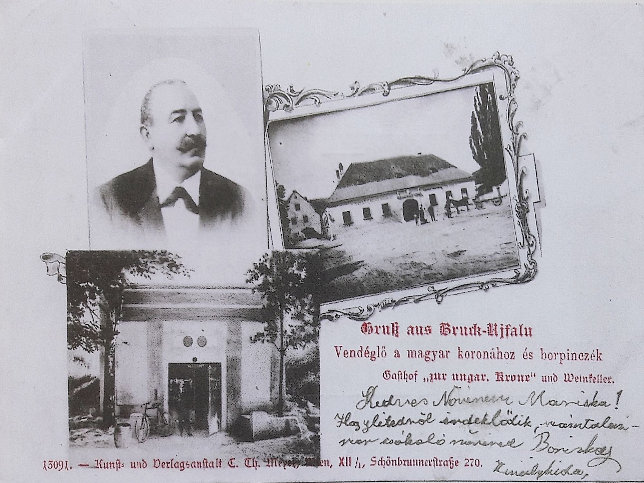 Gruß aus Bruck-Ujfalu
Vendéglő a magyar koronához és borpinczék
Gasthof „zur ungar. Krone" und Weinkeller.
Kedves Növérem Mariska!
Hogylétedről érdeklődik,
csókoló növered Boriska
13091. — Kunst- und Verlagsanstalt C. Th. Meyer, Wien, XII/1, Schönbrunnerstraße 270.